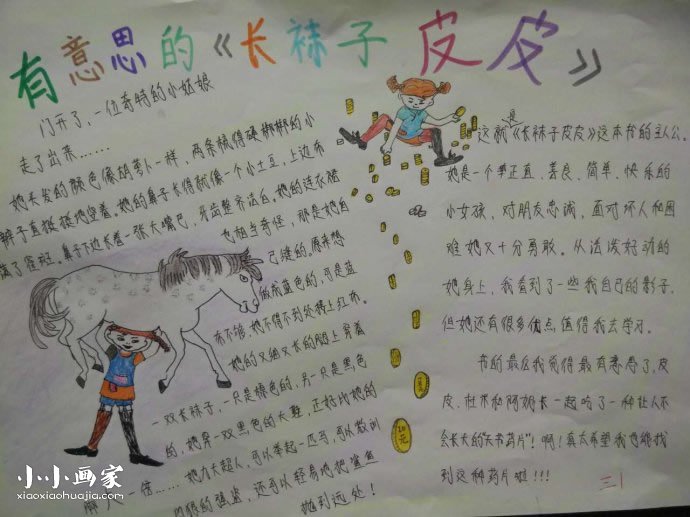 有意思的《长袜子皮皮》
门开了，一位奇特的小姑娘
走了出来……
她头发的颜色像胡萝卜一样，两条梳得硬梆梆的小
辫子直挺挺地竖着。她的鼻子长得就像一个小土豆，上边布
满了雀斑。鼻子下边长着一张大嘴巴，牙齿整齐洁白。她的连衣裙
也相当奇怪，那是她自
己缝的。原来想
做成蓝色的，可是蓝
布不够，她不得不到处缝上红布。
她的又细又长的腿上穿着
一双长袜子，一只是棕色的，另一只是黑色
的，她穿一双黑色的大鞋，正好比她的
脚大一倍……她力大超人，可以举起一匹马，可以教训
凶狠的强盗，还可以轻易地把鲨鱼
抛到远处！
这就是《长袜子皮皮》这本书的主人公。
她是一个正直、善良、简单、快乐的
小女孩，对朋友忠诚，面对坏人和困
难她又十分勇敢。从活泼好动的
她身上，我看到了一些我自己的影子，
但她还有很多优点值得我去学习。
书的最后我觉得最有意思了，皮
皮、杜米和阿妮长一起吃了一种让人不
会长大的"矢书药片"！啊！真太希望我也能找
到这种药片啦！！！
三1
20元
小小画家
xiaoxiaohuajia.com